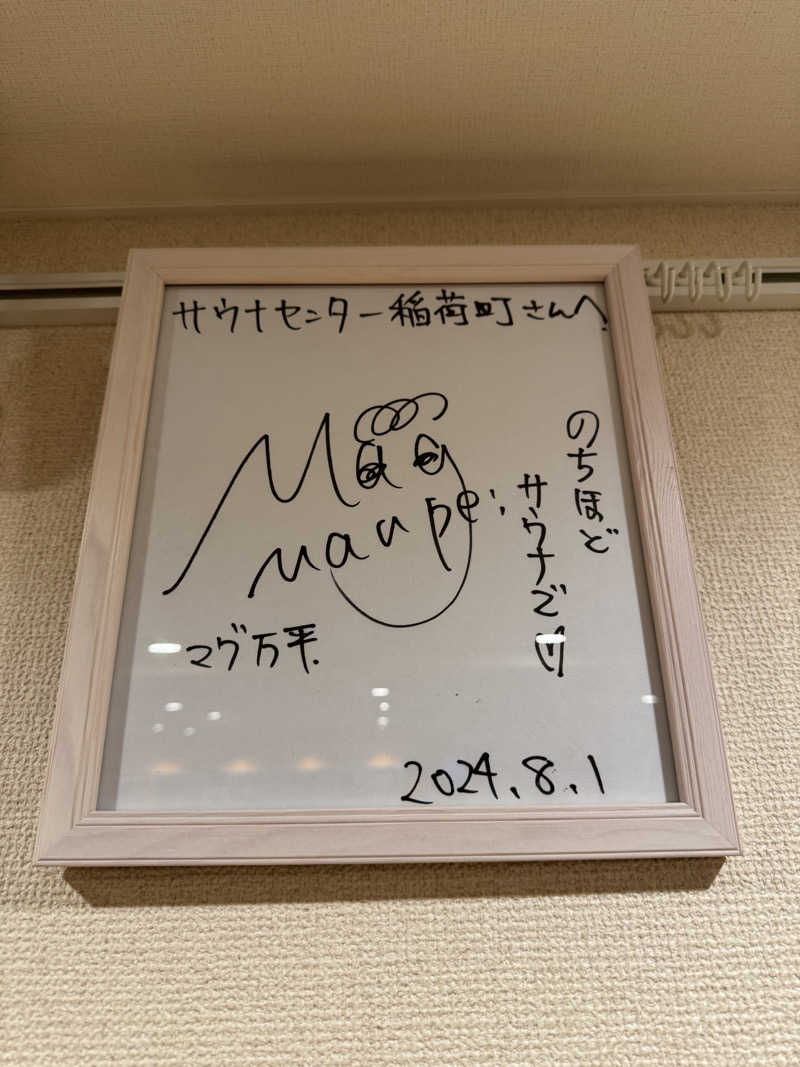 サウナセンター稲荷町さんへ!
Mag
manpei
のちほど
サウナで!!!
マグ万平.
2024.8.1